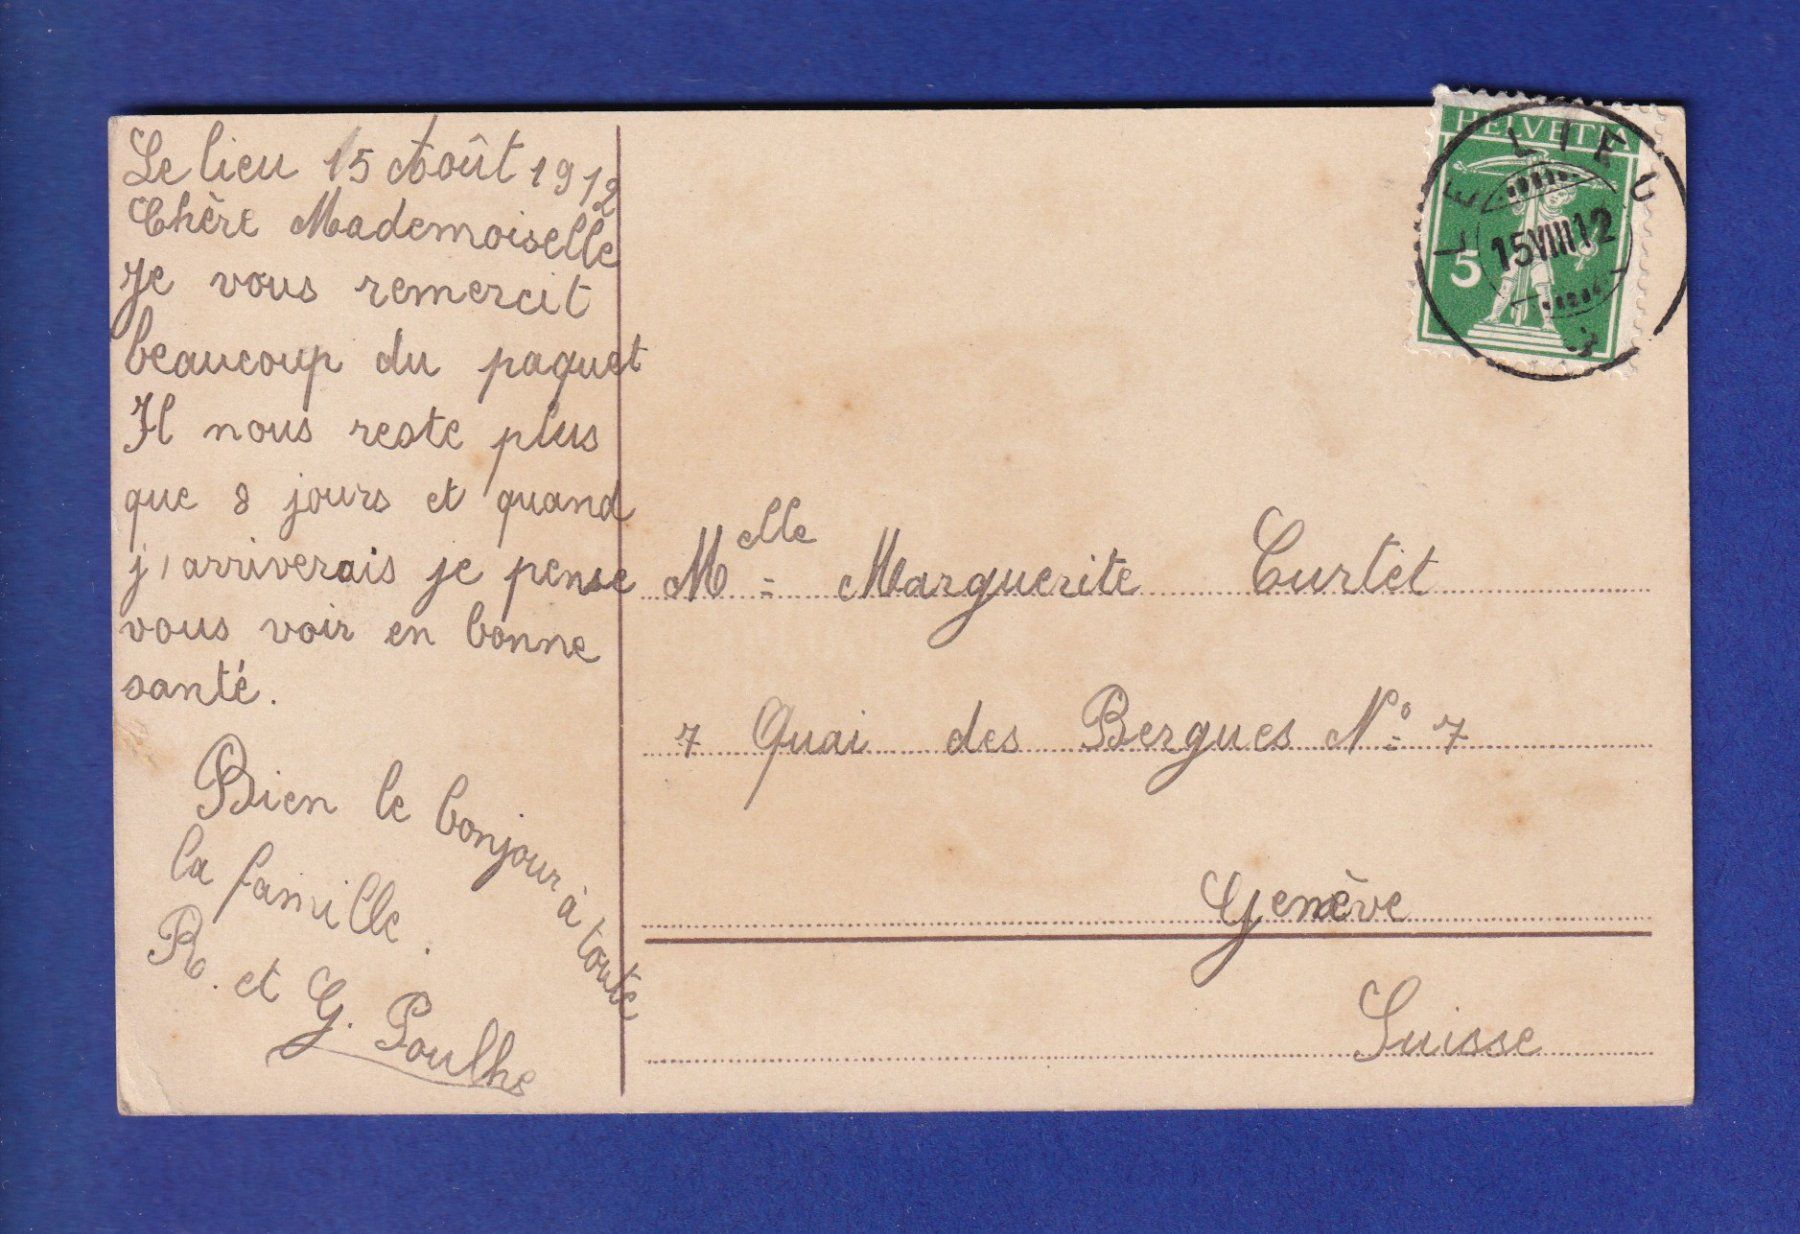 Le lieu 15 Août 1912
Chère Mademoiselle
Je vous remercit
beaucoup du paquet
Il nous reste plus
que 8 jours et quand
j'arriverais je pense
vous voir en bonne
santé.
Bien le bonjour à toute
la famille.
R. et G. Poulhe
HELVETIA
5
LE LIEU
15 VIII 12
Melle = Marguerite Curtet
7 Quai des Bergues No = 7
Genève
Suisse